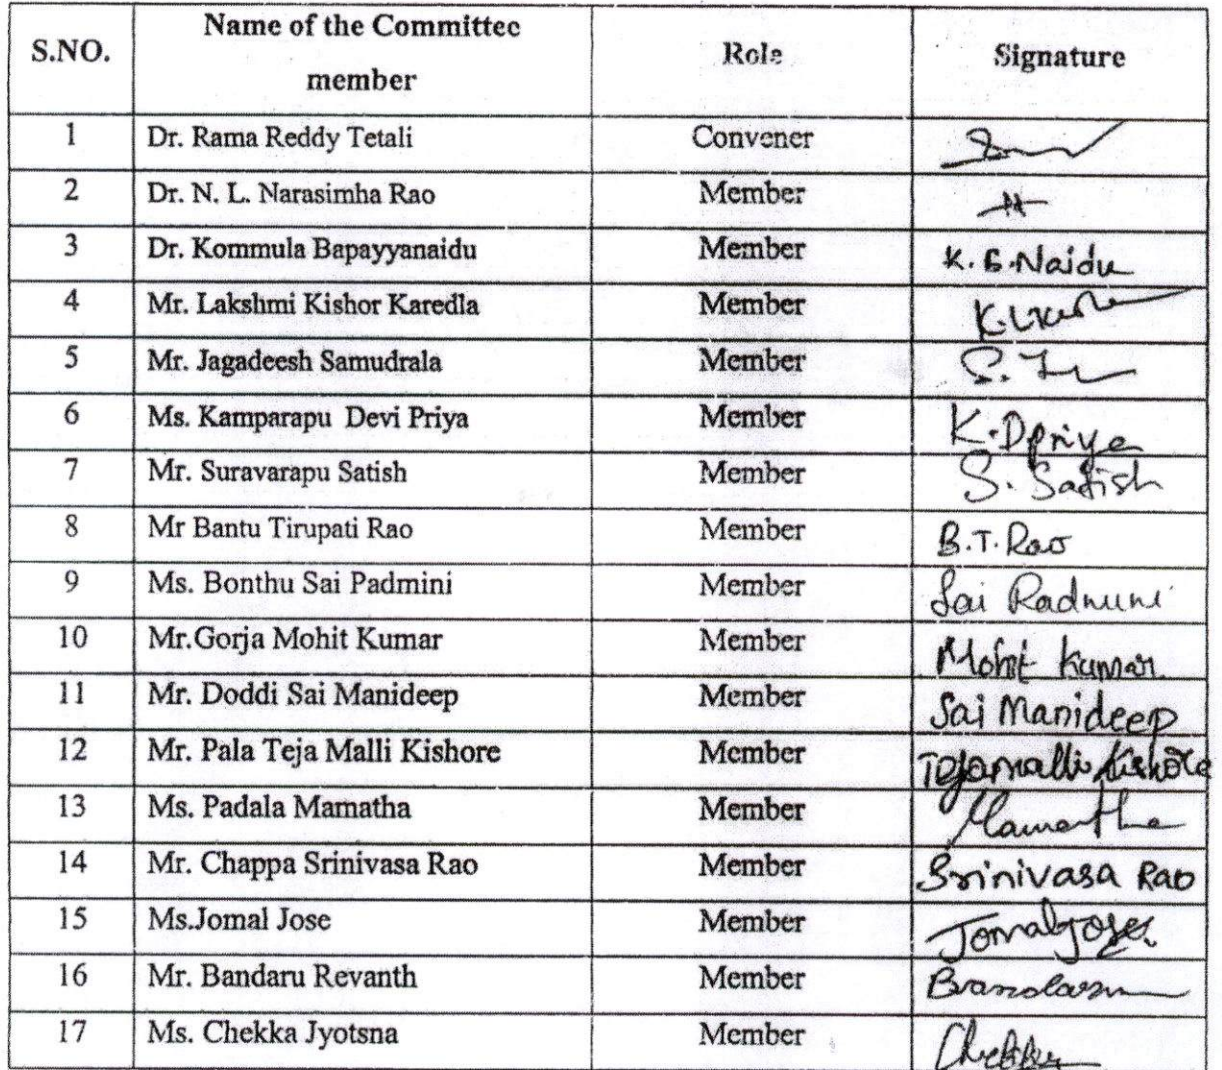 S.NO. Name of the Committee member Role Signature
1 Dr. Rama Reddy Tetali Convener
2 Dr. N. L. Narasimha Rao Member
3 Dr. Kommula Bapayyanaidu Member K.B.Naidu
4 Mr. Lakshmi Kishor Karedla Member
5 Mr. Jagadeesh Samudrala Member
6 Ms. Kamparapu Devi Priya Member K.Dpriya
7 Mr. Suravarapu Satish Member S. Satish
8 Mr Bantu Tirupati Rao Member B.T.Rao
9 Ms. Bonthu Sai Padmini Member Sai Padmini
10 Mr.Gorja Mohit Kumar Member Mohit Kumar
11 Mr. Doddi Sai Manideep Member Sai Manideep
12 Mr. Pala Teja Malli Kishore Member Tejamalli Kishore
13 Ms. Padala Mamatha Member Mamatha
14 Mr. Chappa Srinivasa Rao Member Srinivasa Rao
15 Ms.Jomal Jose Member Jomal Jose
16 Mr. Bandaru Revanth Member
17 Ms. Chekka Jyotsna Member